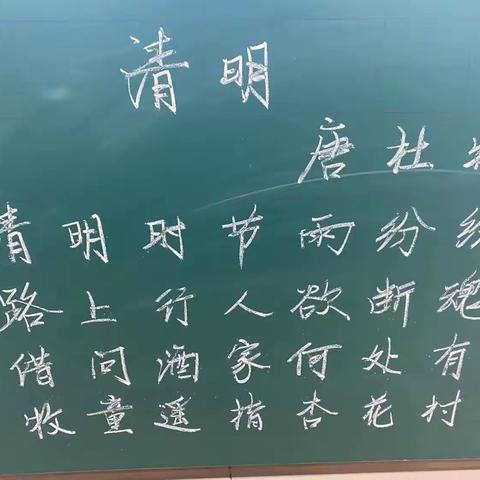 清明
唐 杜牧
清明时节雨纷纷
路上行人欲断魂
借问酒家何处有
收童遥指杏花村